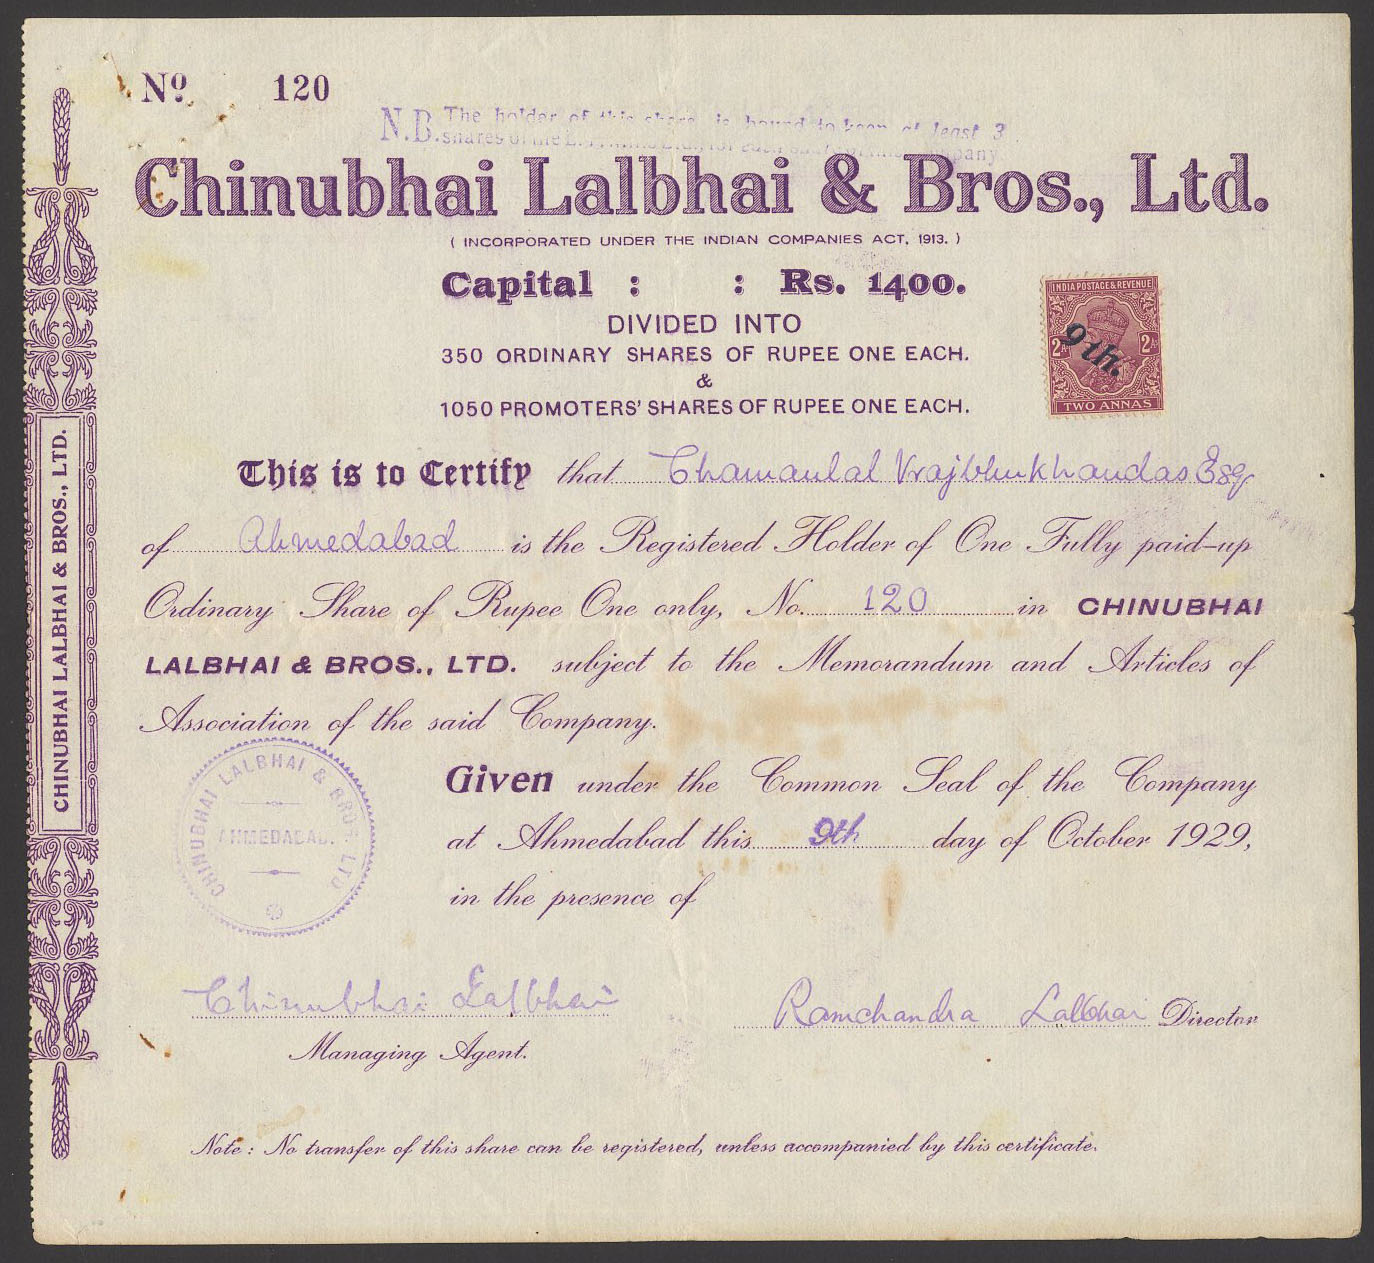 No. 120
N.B. The holder of this share is bound to keep at least 3
shares of the
Chinubhai Lalbhai & Bros., Ltd.
( INCORPORATED UNDER THE INDIAN COMPANIES ACT, 1913. )
Capital : : Rs. 1400.
DIVIDED INTO
350 ORDINARY SHARES OF RUPEE ONE EACH.
&
1050 PROMOTERS' SHARES OF RUPEE ONE EACH.
INDIA POSTAGE & REVENUE
2As 2As
9th.
TWO ANNAS
This is to Certify that Chamanlal Vrajbhukhandas Esq
of Ahmedabad is the Registered Holder of One Fully paid-up
Ordinary Share of Rupee One only, No. 120 in CHINUBHAI
LALBHAI & BROS., LTD. subject to the Memorandum and Articles of
Association of the said Company.
Given under the Common Seal of the Company
at Ahmedabad this 9th day of October 1929,
in the presence of
CHINUBHAI LALBHAI & BROS. LTD
AHMEDABAD.
Chinubhai Lalbhai
Managing Agent.
Ramchandra Lalbhai Director
Note : No transfer of this share can be registered, unless accompanied by this certificate.
CHINUBHAI LALBHAI & BROS., LTD.